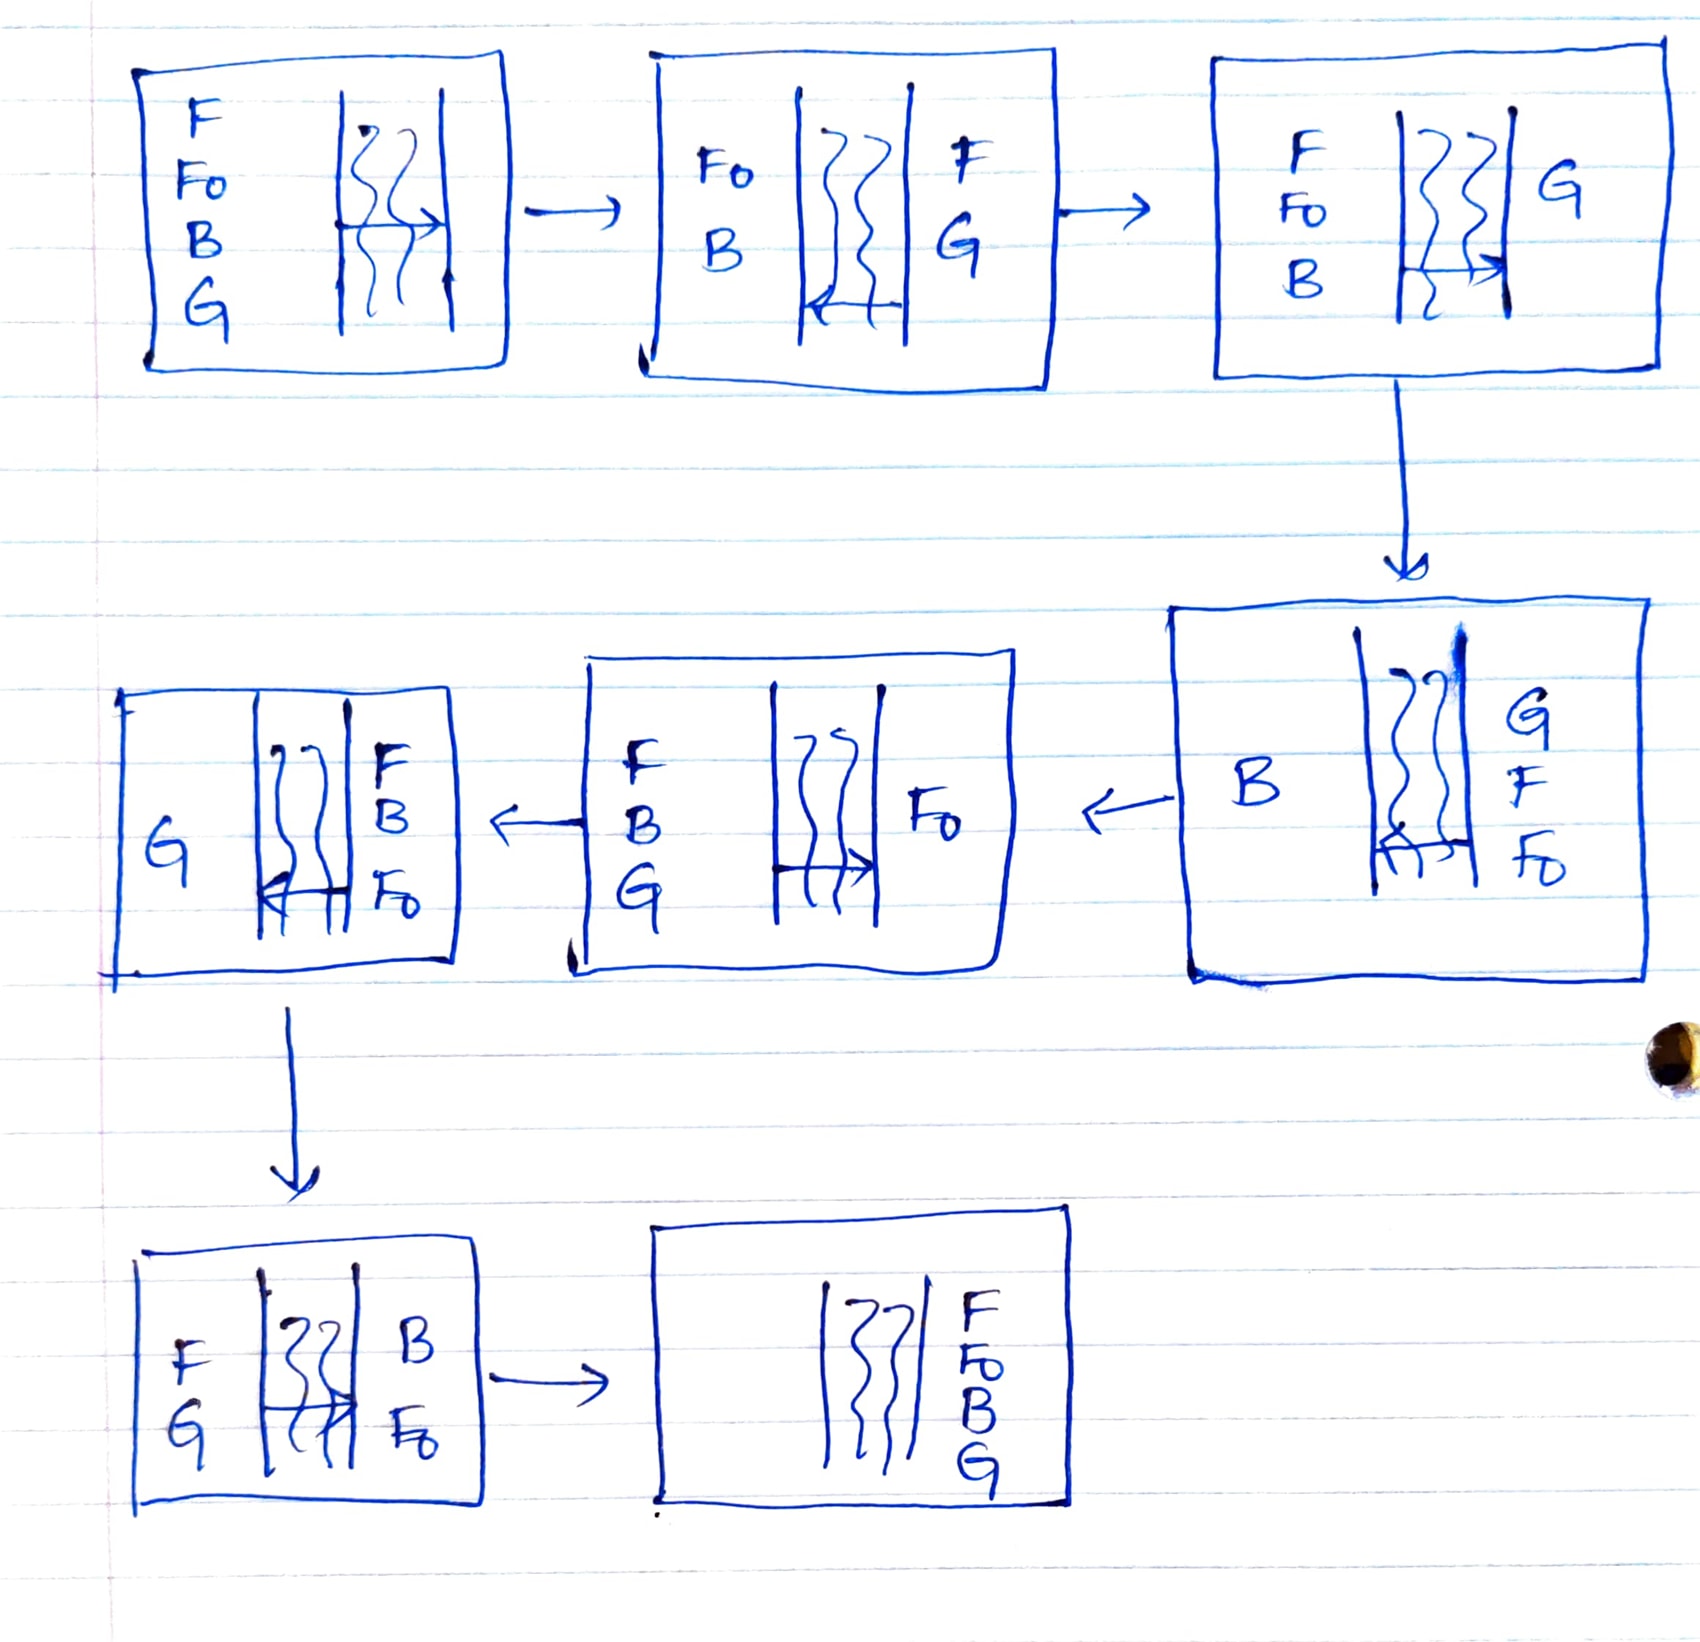 F
Fo
B
G
Fo
B
F
G
F
Fo
B
G
B
G
F
Fo
F
B
G
Fo
G
F
B
Fo
F
G
B
Fo
F
Fo
B
G